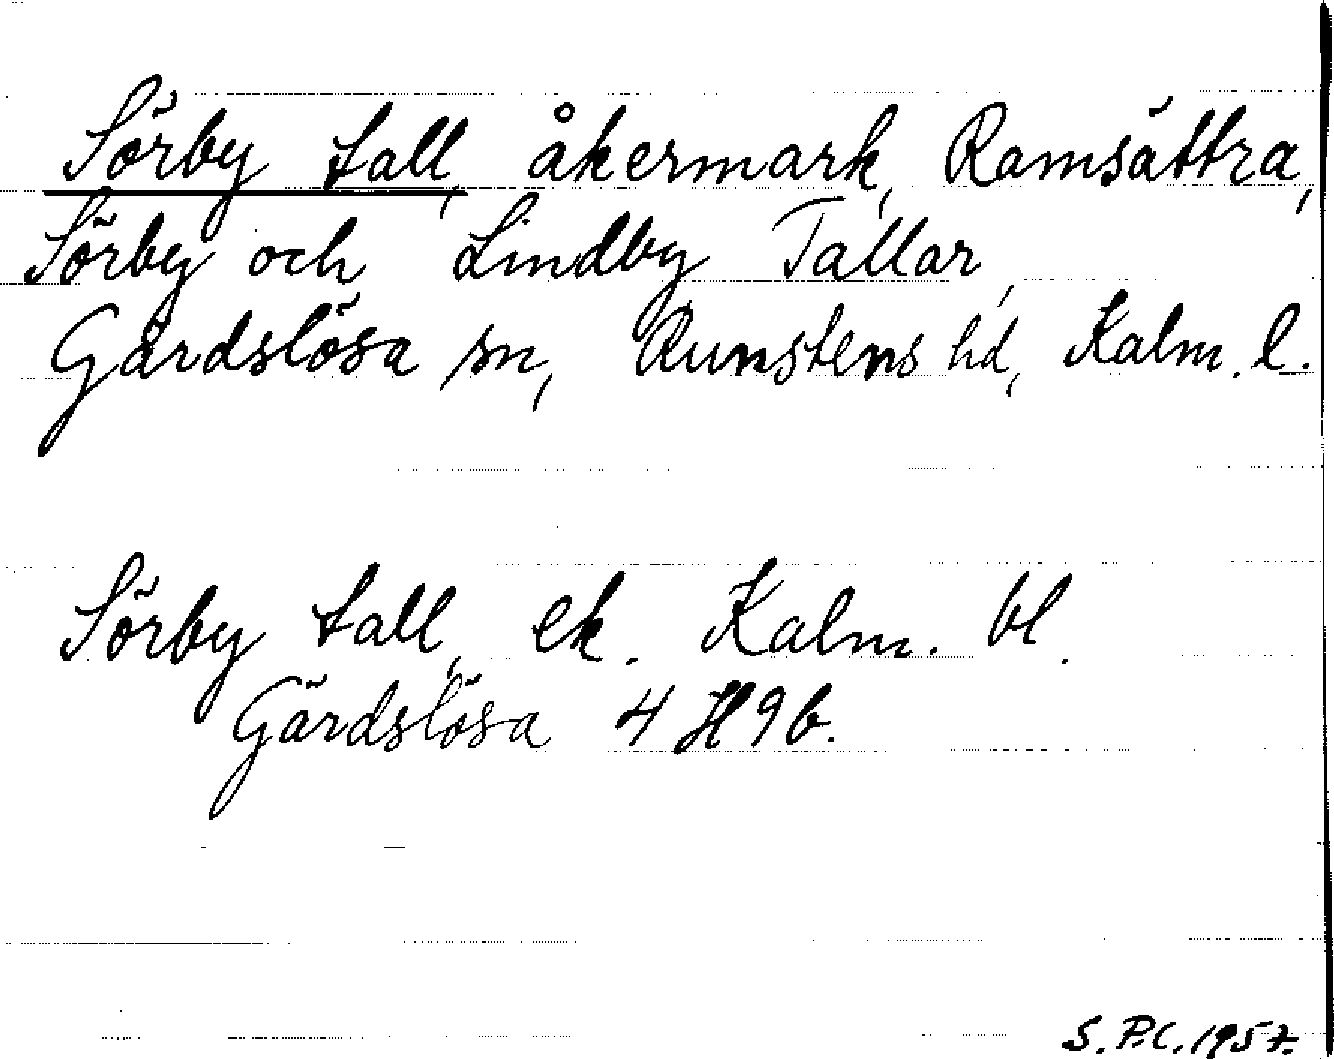 Sörby tall, åkermark, Ramsättra,
Sörby och Lindby Tallar,
Gärdslösa sn, Runstens hd, Kalm. l.
Sörby tall, ek. Kalm. bl.
Gärdslösa 4 H 9 b.
S. P. C. 1957.